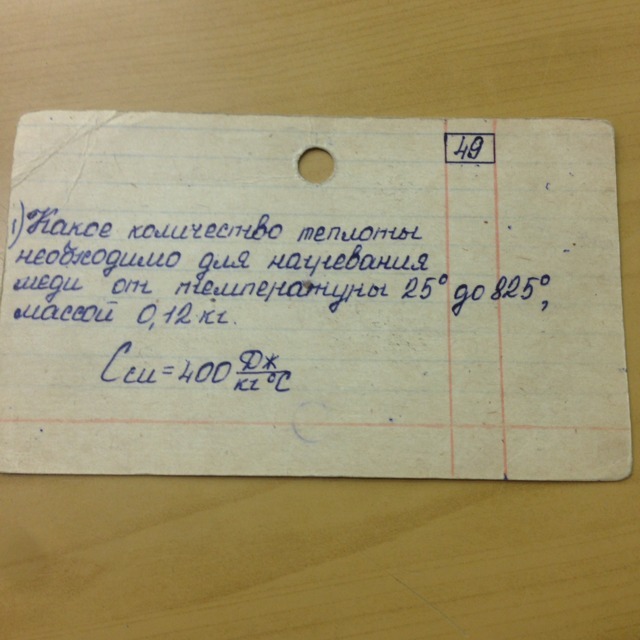 49
1) Какое количество теплоты
необходимо для нагревания
меди от температуры 25° до 825°,
массой 0,12 кг.
Cм = 400 Дж/кг °C